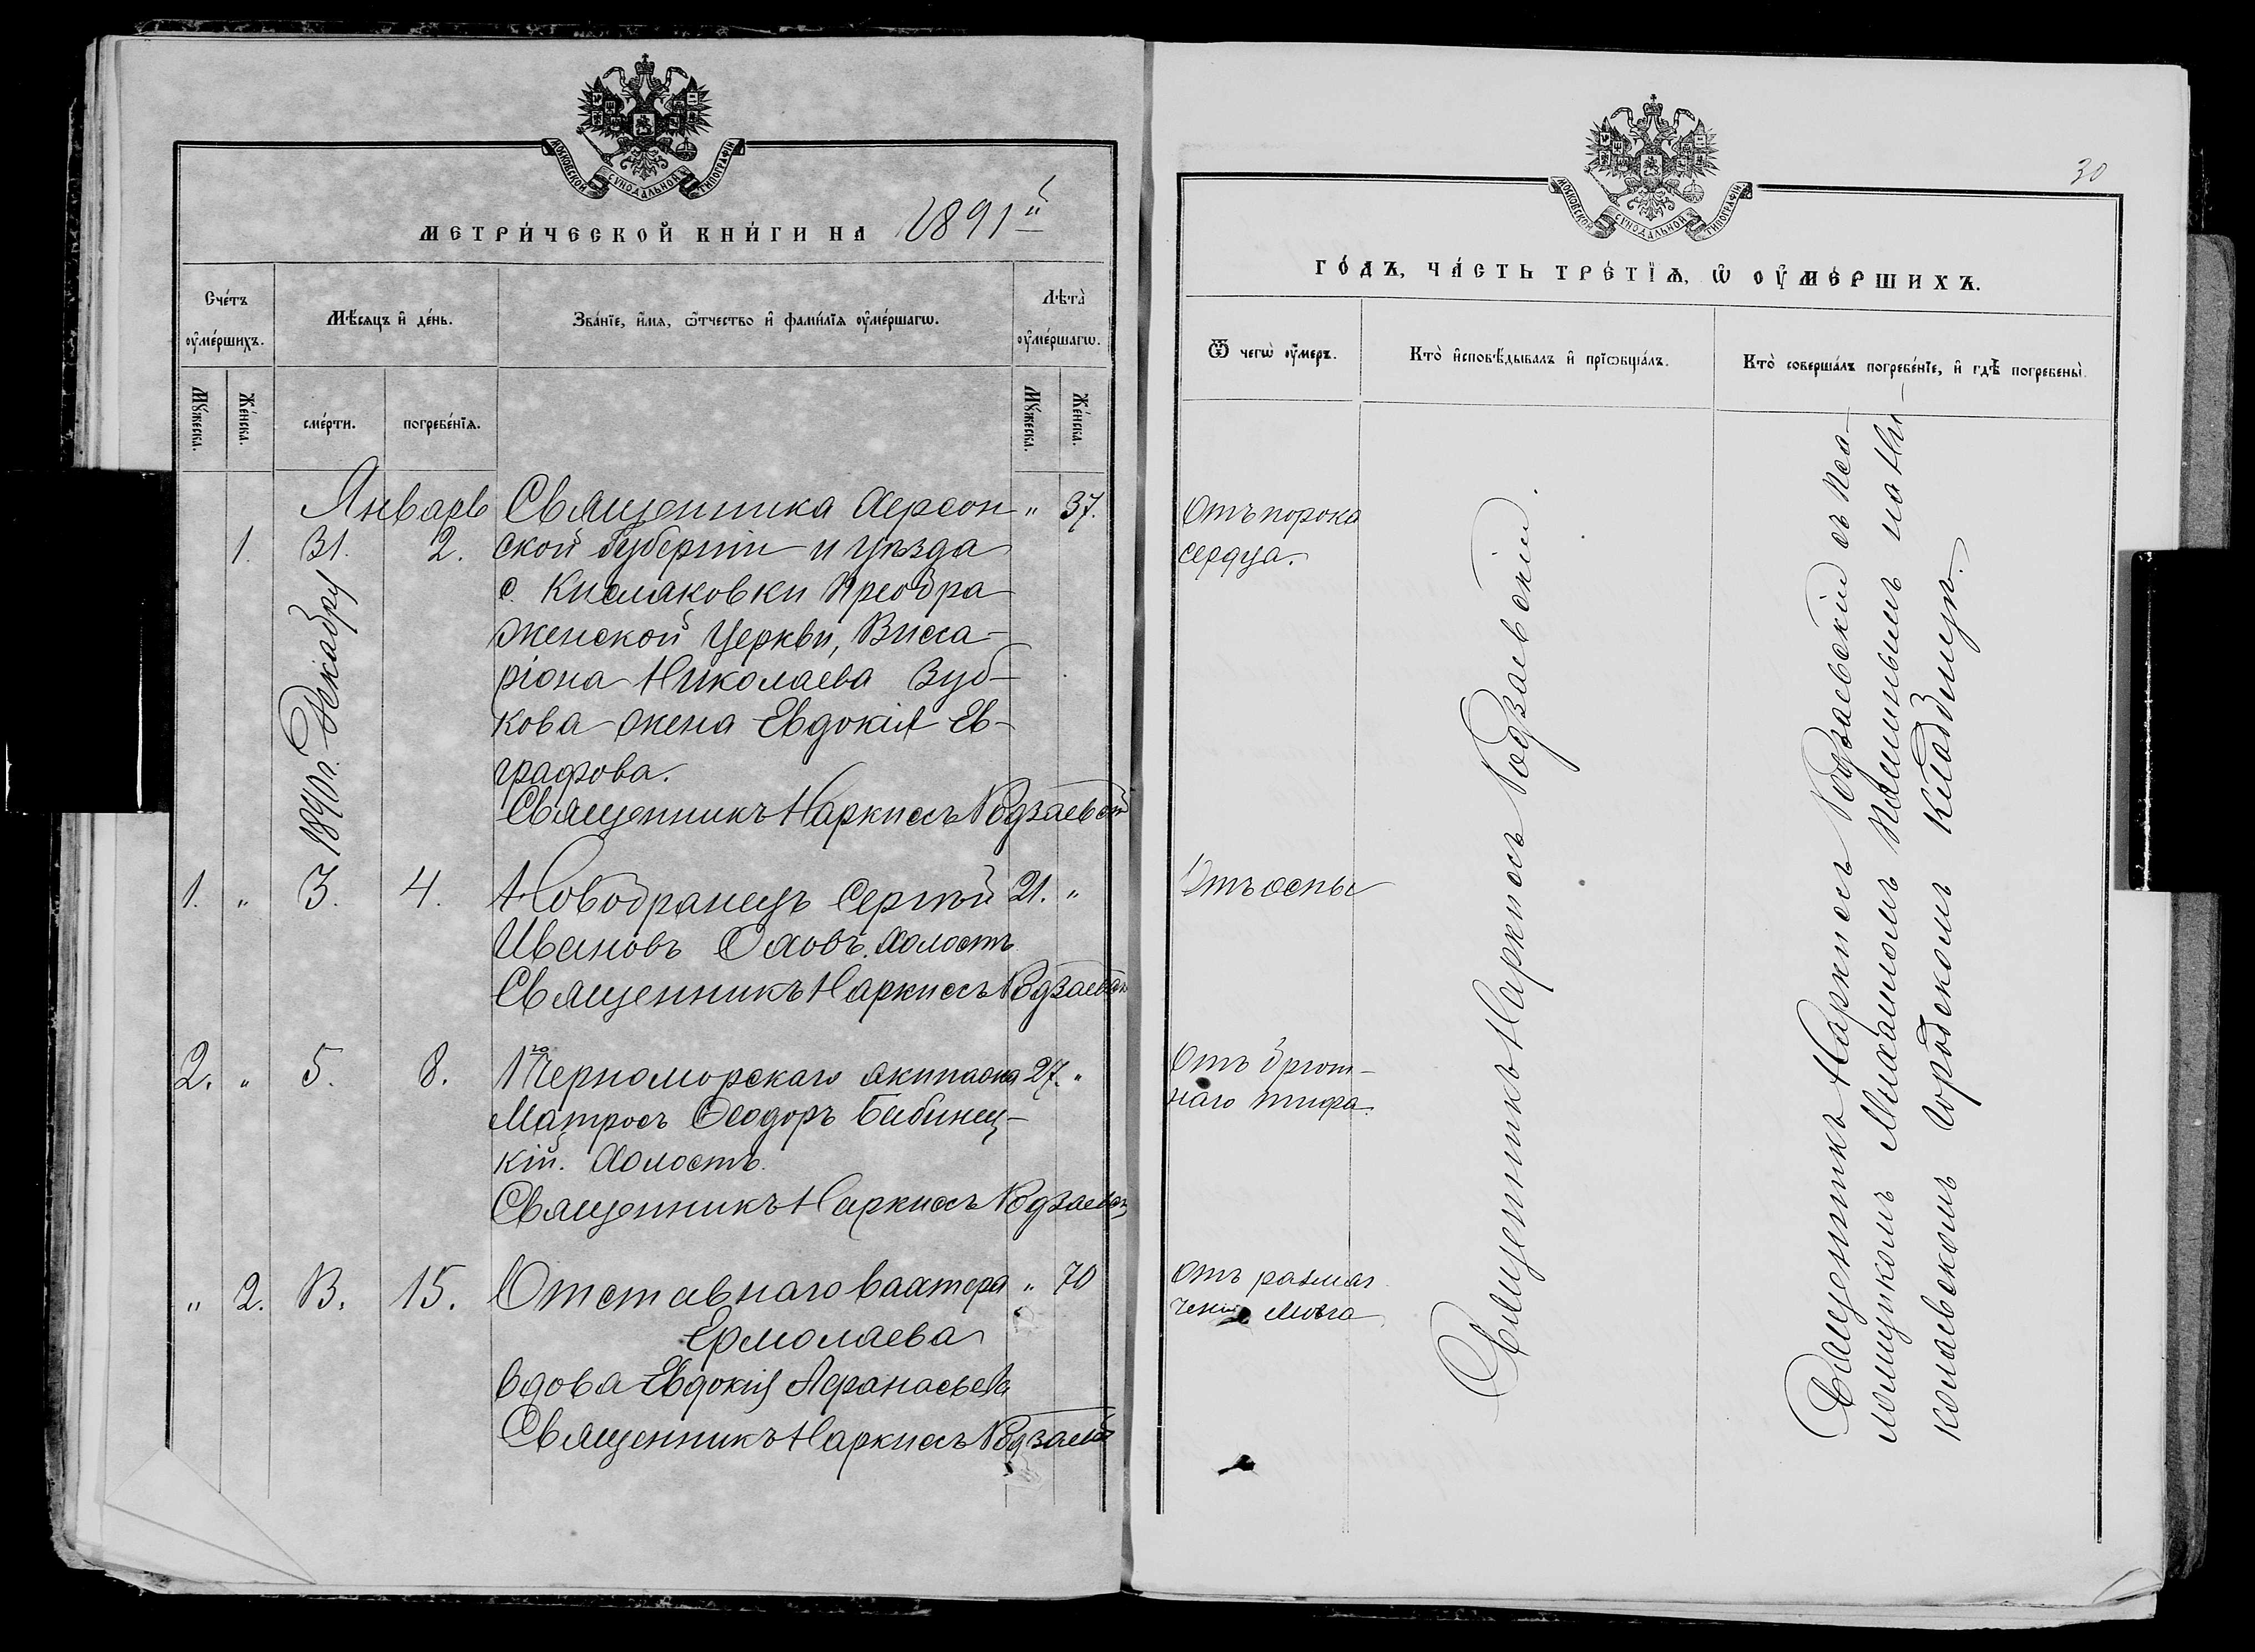 МОСКОВСКОЙ СѴНОДАЛЬНОЙ ТИПОГРАФІИ
МЕТРИ́ЧЕСКОЙ КНИ́ГИ НА 1891й
Сче́тъ оу҆ме́ршихъ.
Мѣ́сяцъ и҆ де́нь.
Зва́нїе, и҆́мя, ѻ҆́тчество и҆ фами́лїя оу҆ме́ршагѡ.
Лѣта̀ оу҆ме́ршагѡ.
Мꙋ́жеска.
Же́нска.
сме́рти.
погребе́нїѧ.
Мꙋ́жеска.
Же́нска.
Январь Священника Херсон- " 37.
1. 31. 2. ской Губерніи и уѣзда
1890 г. Декабря
с. Кислаковки Преобра
женской Церкви, Висса-
ріона Николаева Зуб-
кова жена Евдокія Ев-
графова.
Священникъ Наркиссъ Подзаевскій
1. " 3. 4. Новобранецъ Сергѣй 21. "
Ивановъ холостъ
Священникъ Наркиссъ Подзаевскій
2. " 5. 8. 1го Черноморскаго экипажа 27. "
Матросъ Ѳеодоръ Бабинец-
кій. Холостъ.
Священникъ Наркиссъ Подзаевскій
" 2. 13. 15. Отставнаго вахтера " 70
Ермолаева
вдова Евдокія Афанасьева
Священникъ Наркиссъ Подзаевскій
30
МОСКОВСКОЙ СѴНОДАЛЬНОЙ ТИПОГРАФІИ
ГО́ДЪ, ЧА́СТЬ ТРЕ́ТЇѦ, Ѡ҆ ОУ҆МЕ́РШИХЪ.
Ѿ чегѡ̀ оу҆́меръ.
Кто̀ и҆сповѣ́дывалъ и҆ прїѡбща́лъ.
Кто̀ соверша́лъ погребе́нїе, и҆ гдѣ̀ погребены̀.
Отъ порока
сердца.
Отъ оспы
Отъ брюш-
наго тифа.
Отъ размяг
ченія мозга
Священникъ Наркиссъ Подзаевскій.
Священникъ Наркиссъ Подзаевскій съ пса-
ломщикомъ Михаиломъ на Ни-
колаевскомъ городскомъ кладбищѣ.